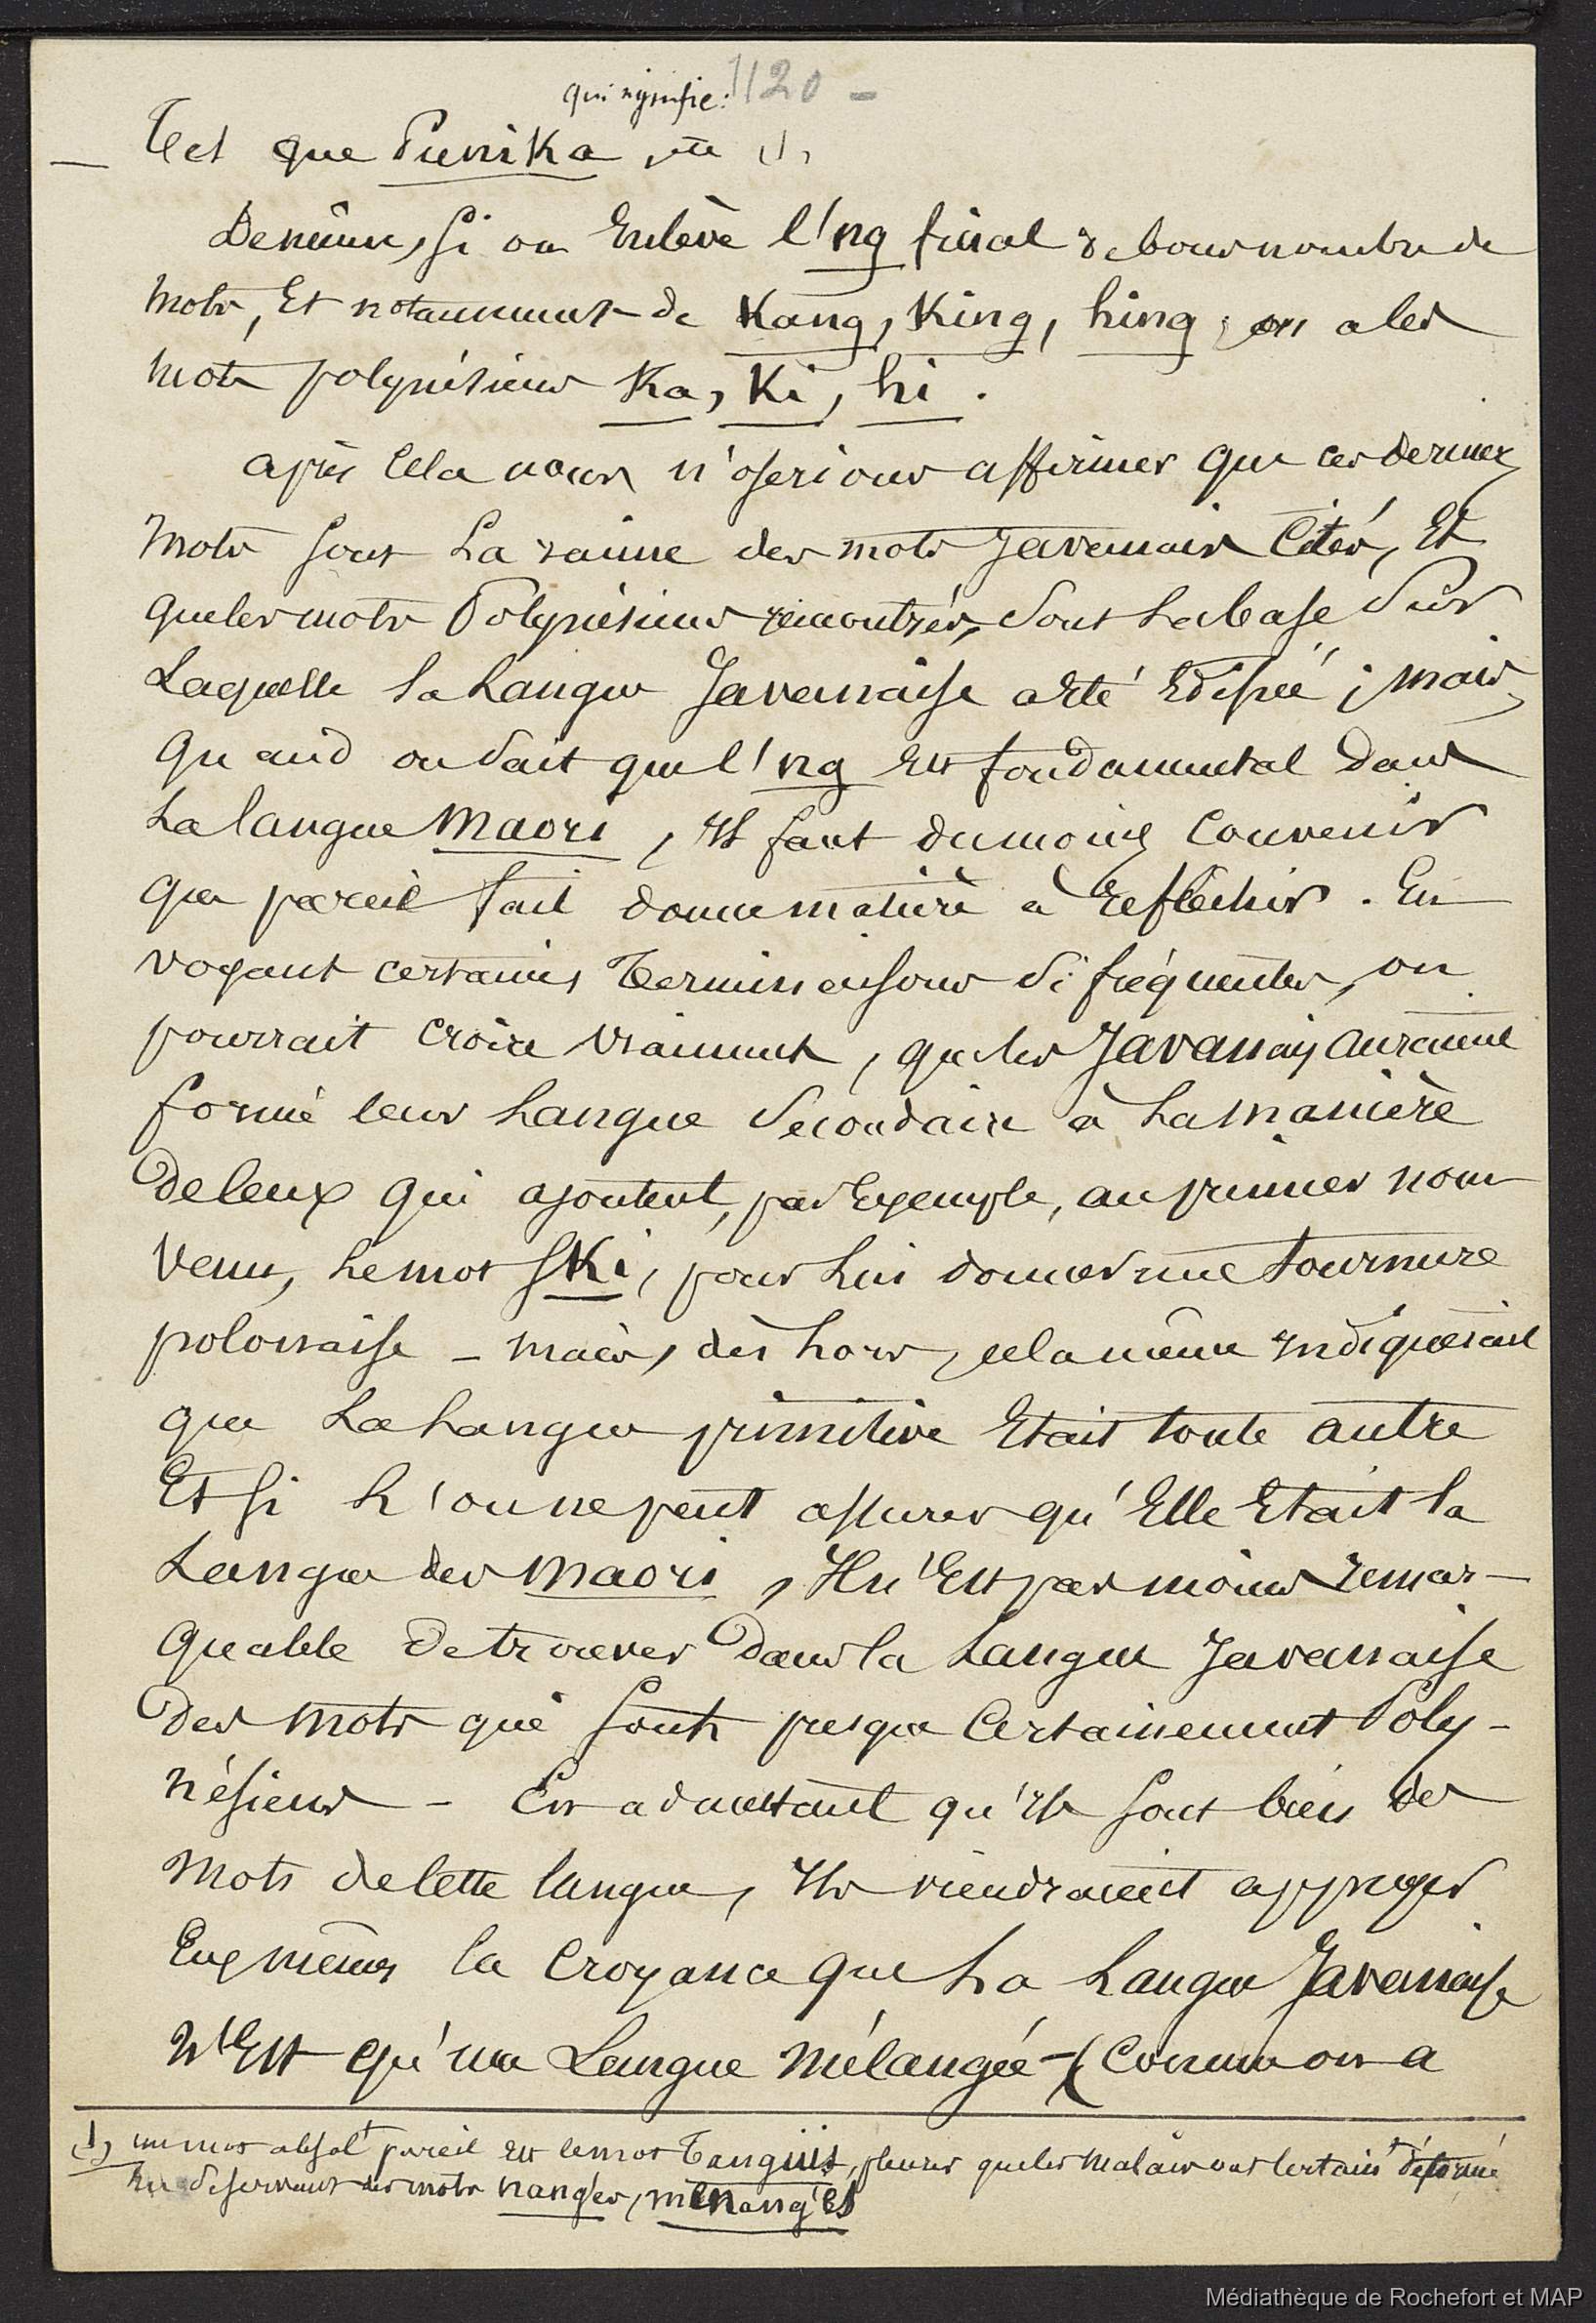 qui signifie: 1120 -
— Tel que Punika, etc (1),
De même, si on Enlève l'ng final de bon nombre de
mots, Et notamment de Kang, King, hing, on a les
mots polynésiens Ka, Ki, hi.
après cela nous n'oserions affirmer que ces derniers
mots sont la racine des mots Javanais cités, Et
que les mots Polynésiens rencontrés, sont la base sur
Laquelle la Langue Javanaise a été Edifiée ; mais,
quand on sait que l'ng Est fondamental dans
La langue Maori, Il faut du moins Convenir
que pareil fait donne matière à Réfléchir. En
voyant certaines terminaisons si fréquentes, on
pourrait croire vraiment, que les Javanais auraient
formé leur Langue Secondaire à La manière
de ceux qui ajoutent, par Exemple, au premier nom
venu, Le mot ski, pour Lui donner une tournure
polonaise - mais, dès Lors, cela même Indiquerait
que La Langue primitive Etait toute autre
Et si L'on ne peut assurer qu'Elle Etait la
Langue des Maori, Il n'Est pas moins remar-
quable de trouver dans la Langue Javanaise
des mots qui sont presque Certainement Poly-
nésiens - En admettant qu'Ils sont bien des
mots de Cette langue, Ils viendraient appuyer
Eux mêmes la Croyance que La Langue Javanaise
N'Est qu'une Langue Mélangée - (Comme on a
(1) un mot absolt pareil Est le mot Tanguis, pleurer que les Malais ont certaint déformé
En se servant des mots nangès, menangés
Médiathèque de Rochefort et MAP